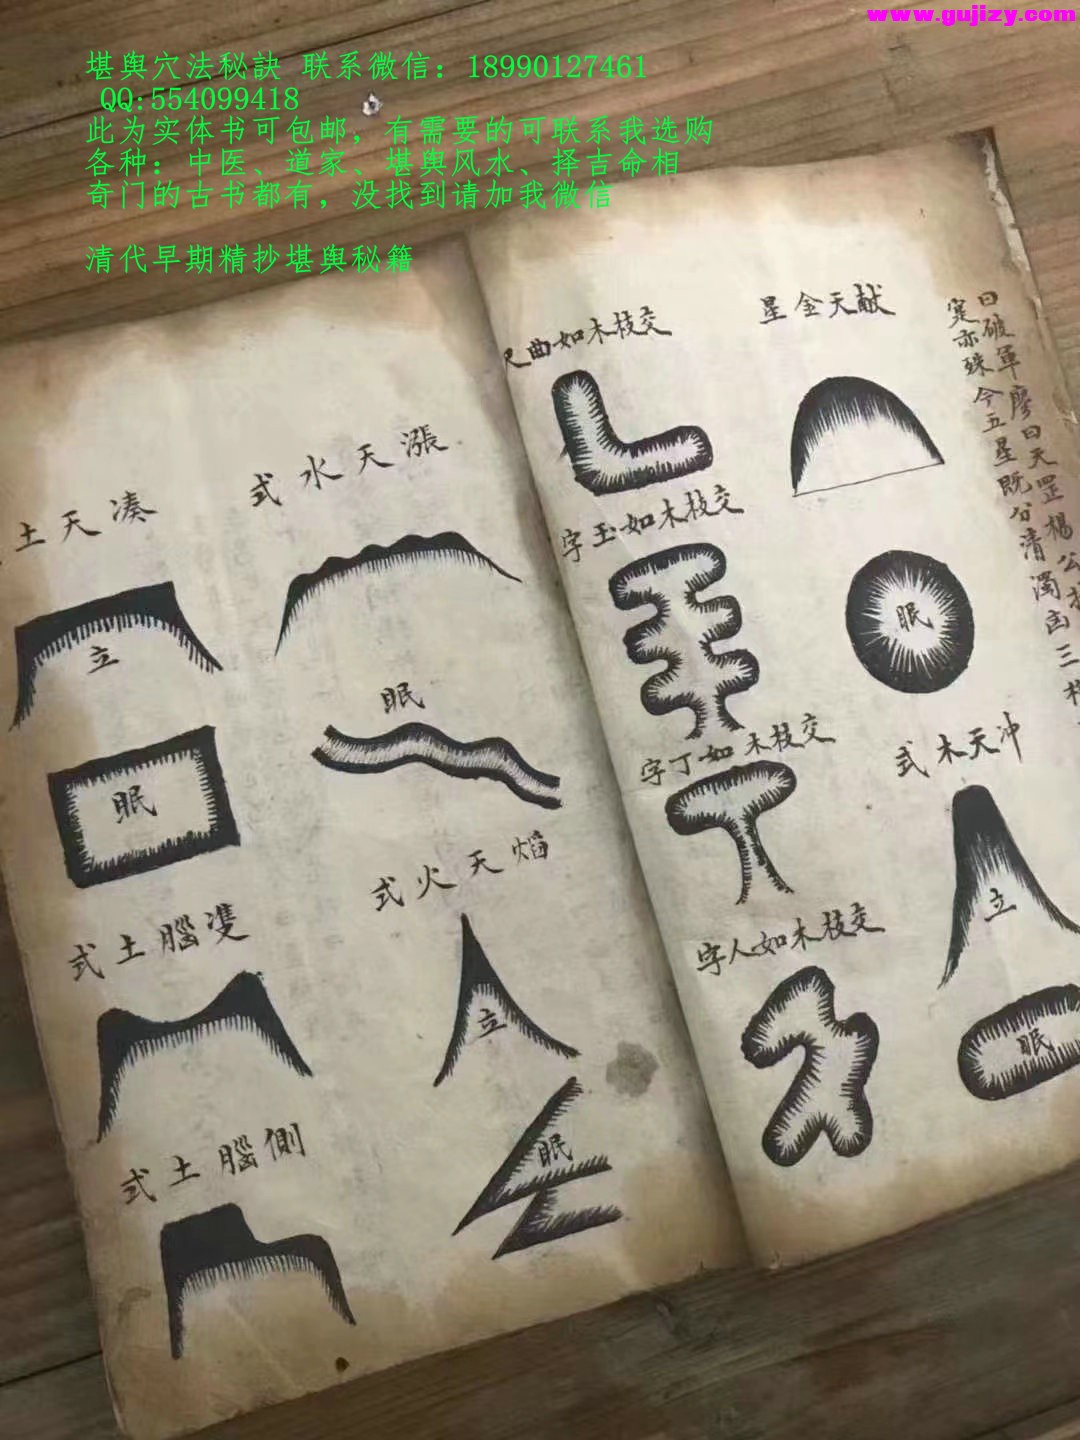 www.gujizy.com
堪舆穴法秘訣 联系微信：18990127461
QQ:554099418
此为实体书可包邮，有需要的可联系我选购
各种：中医、道家、堪舆风水、择吉命相
奇门的古书都有，没找到请加我微信
清代早期精抄堪舆秘籍
曰破軍廖曰天罡楊公
寔亦殊今五星既分清濁
三
献天金星
眠
冲天木式
立
眠
交枝木如曲尺
交枝木如玉字
交枝木如丁字
交枝木如人字
漲天水式
眠
焰天火式
立
眠
凑天土
立
眠
雙腦土式
側腦土式